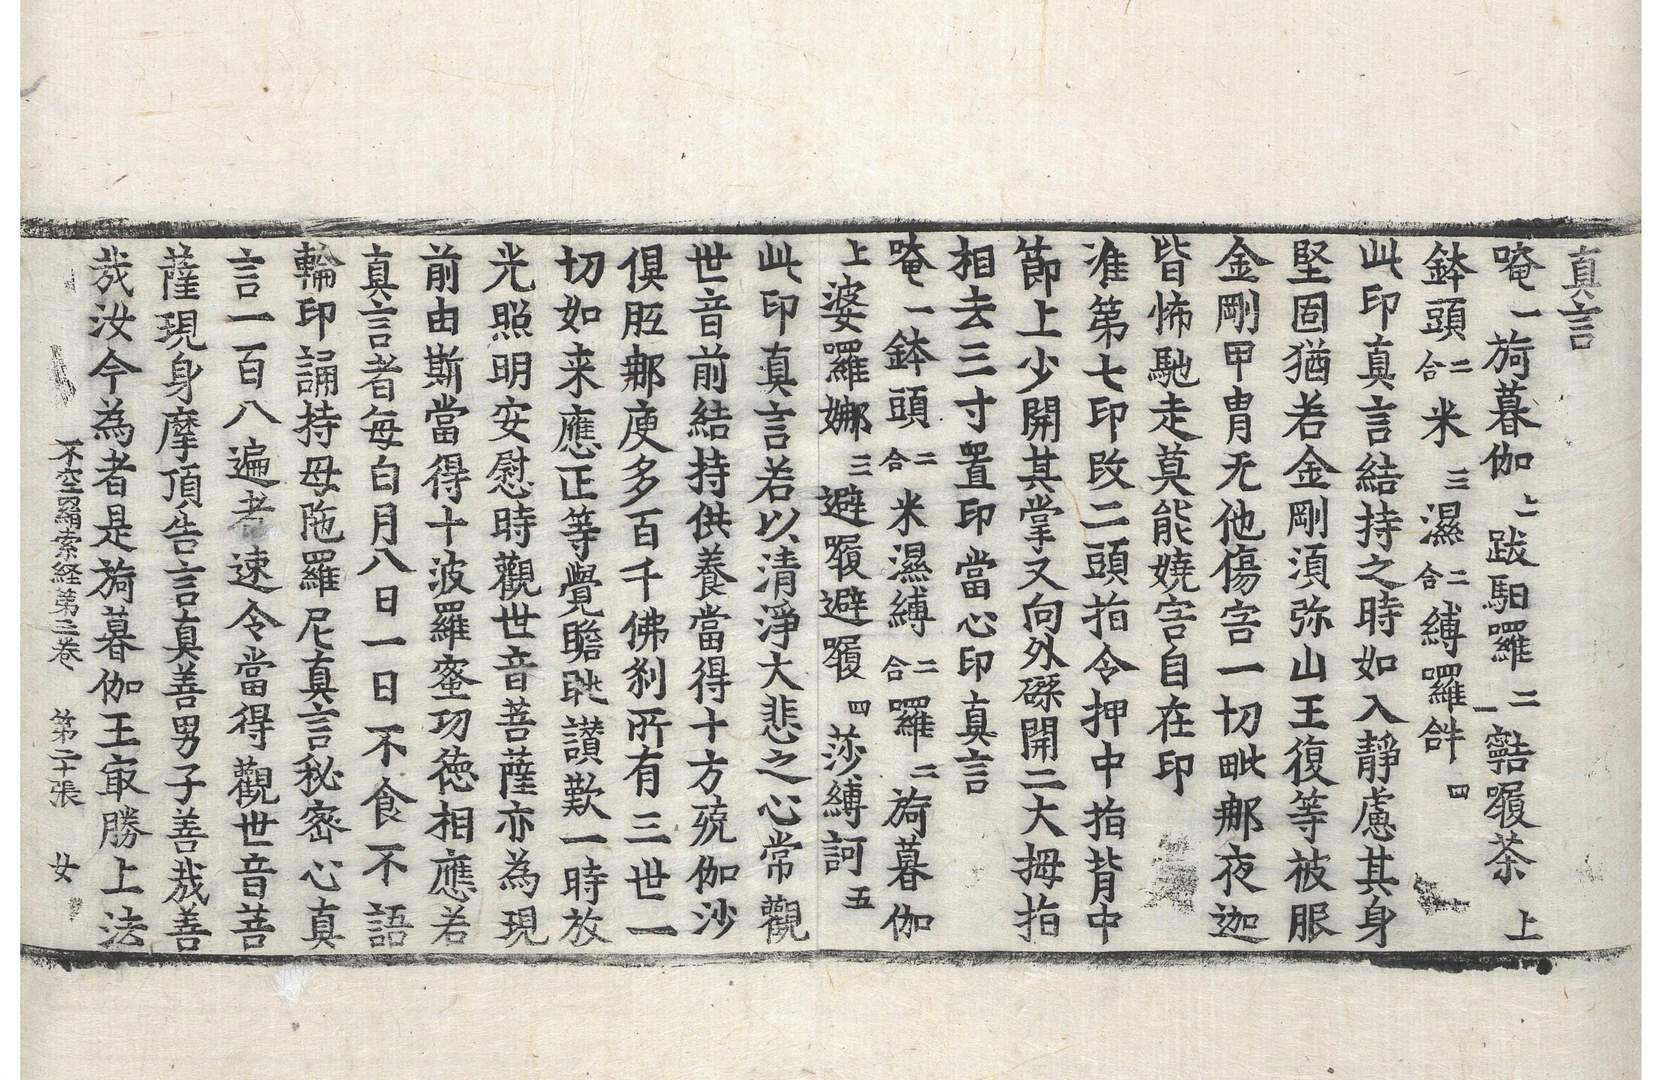 真言
唵一旖暮伽上二跋馹囉二一𪘨㘑茶上
鉢頭二合米三濕二合縛囉𤙖四
此印真言結持之時如入靜慮其身
堅固猶若金剛湏弥山王復等被服
金剛甲胄无他傷害一切毗那夜迦
皆怖馳走莫能嬈害自在印
准第七印改二頭指令押中指背中
節上少開其掌又向外磔開二大拇指
相去三寸置印當心印真言
唵一鉢頭二合米濕縛二合囉二旖暮伽
上婆囉娜三避㘑避㘑四莎縛訶五
此印真言若以清淨大悲之心常觀
世音前結持供養當得十方殑伽沙
俱胝那庾多百千佛刹所有三世一
切如来應正等覺瞻眺讃歎一時放
光照明安慰時觀世音菩薩亦為現
前由斯當得十波羅蜜功徳相應若
真言者每白月八日一日不食不語
輪印誦持母陁羅尼真言秘密心真
言一百八遍者速令當得觀世音菩
薩現身摩頂告言真善男子善㢤善
㢤汝今為者是旖暮伽王㝡勝上法
不空羂索経第三卷 第二十張 女